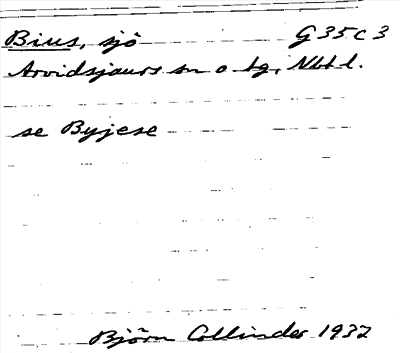 Bius, sjö G 35 c 3
Arvidsjaurs sn o tg, Nbtl.
se Byjese
Björn Collinder 1937